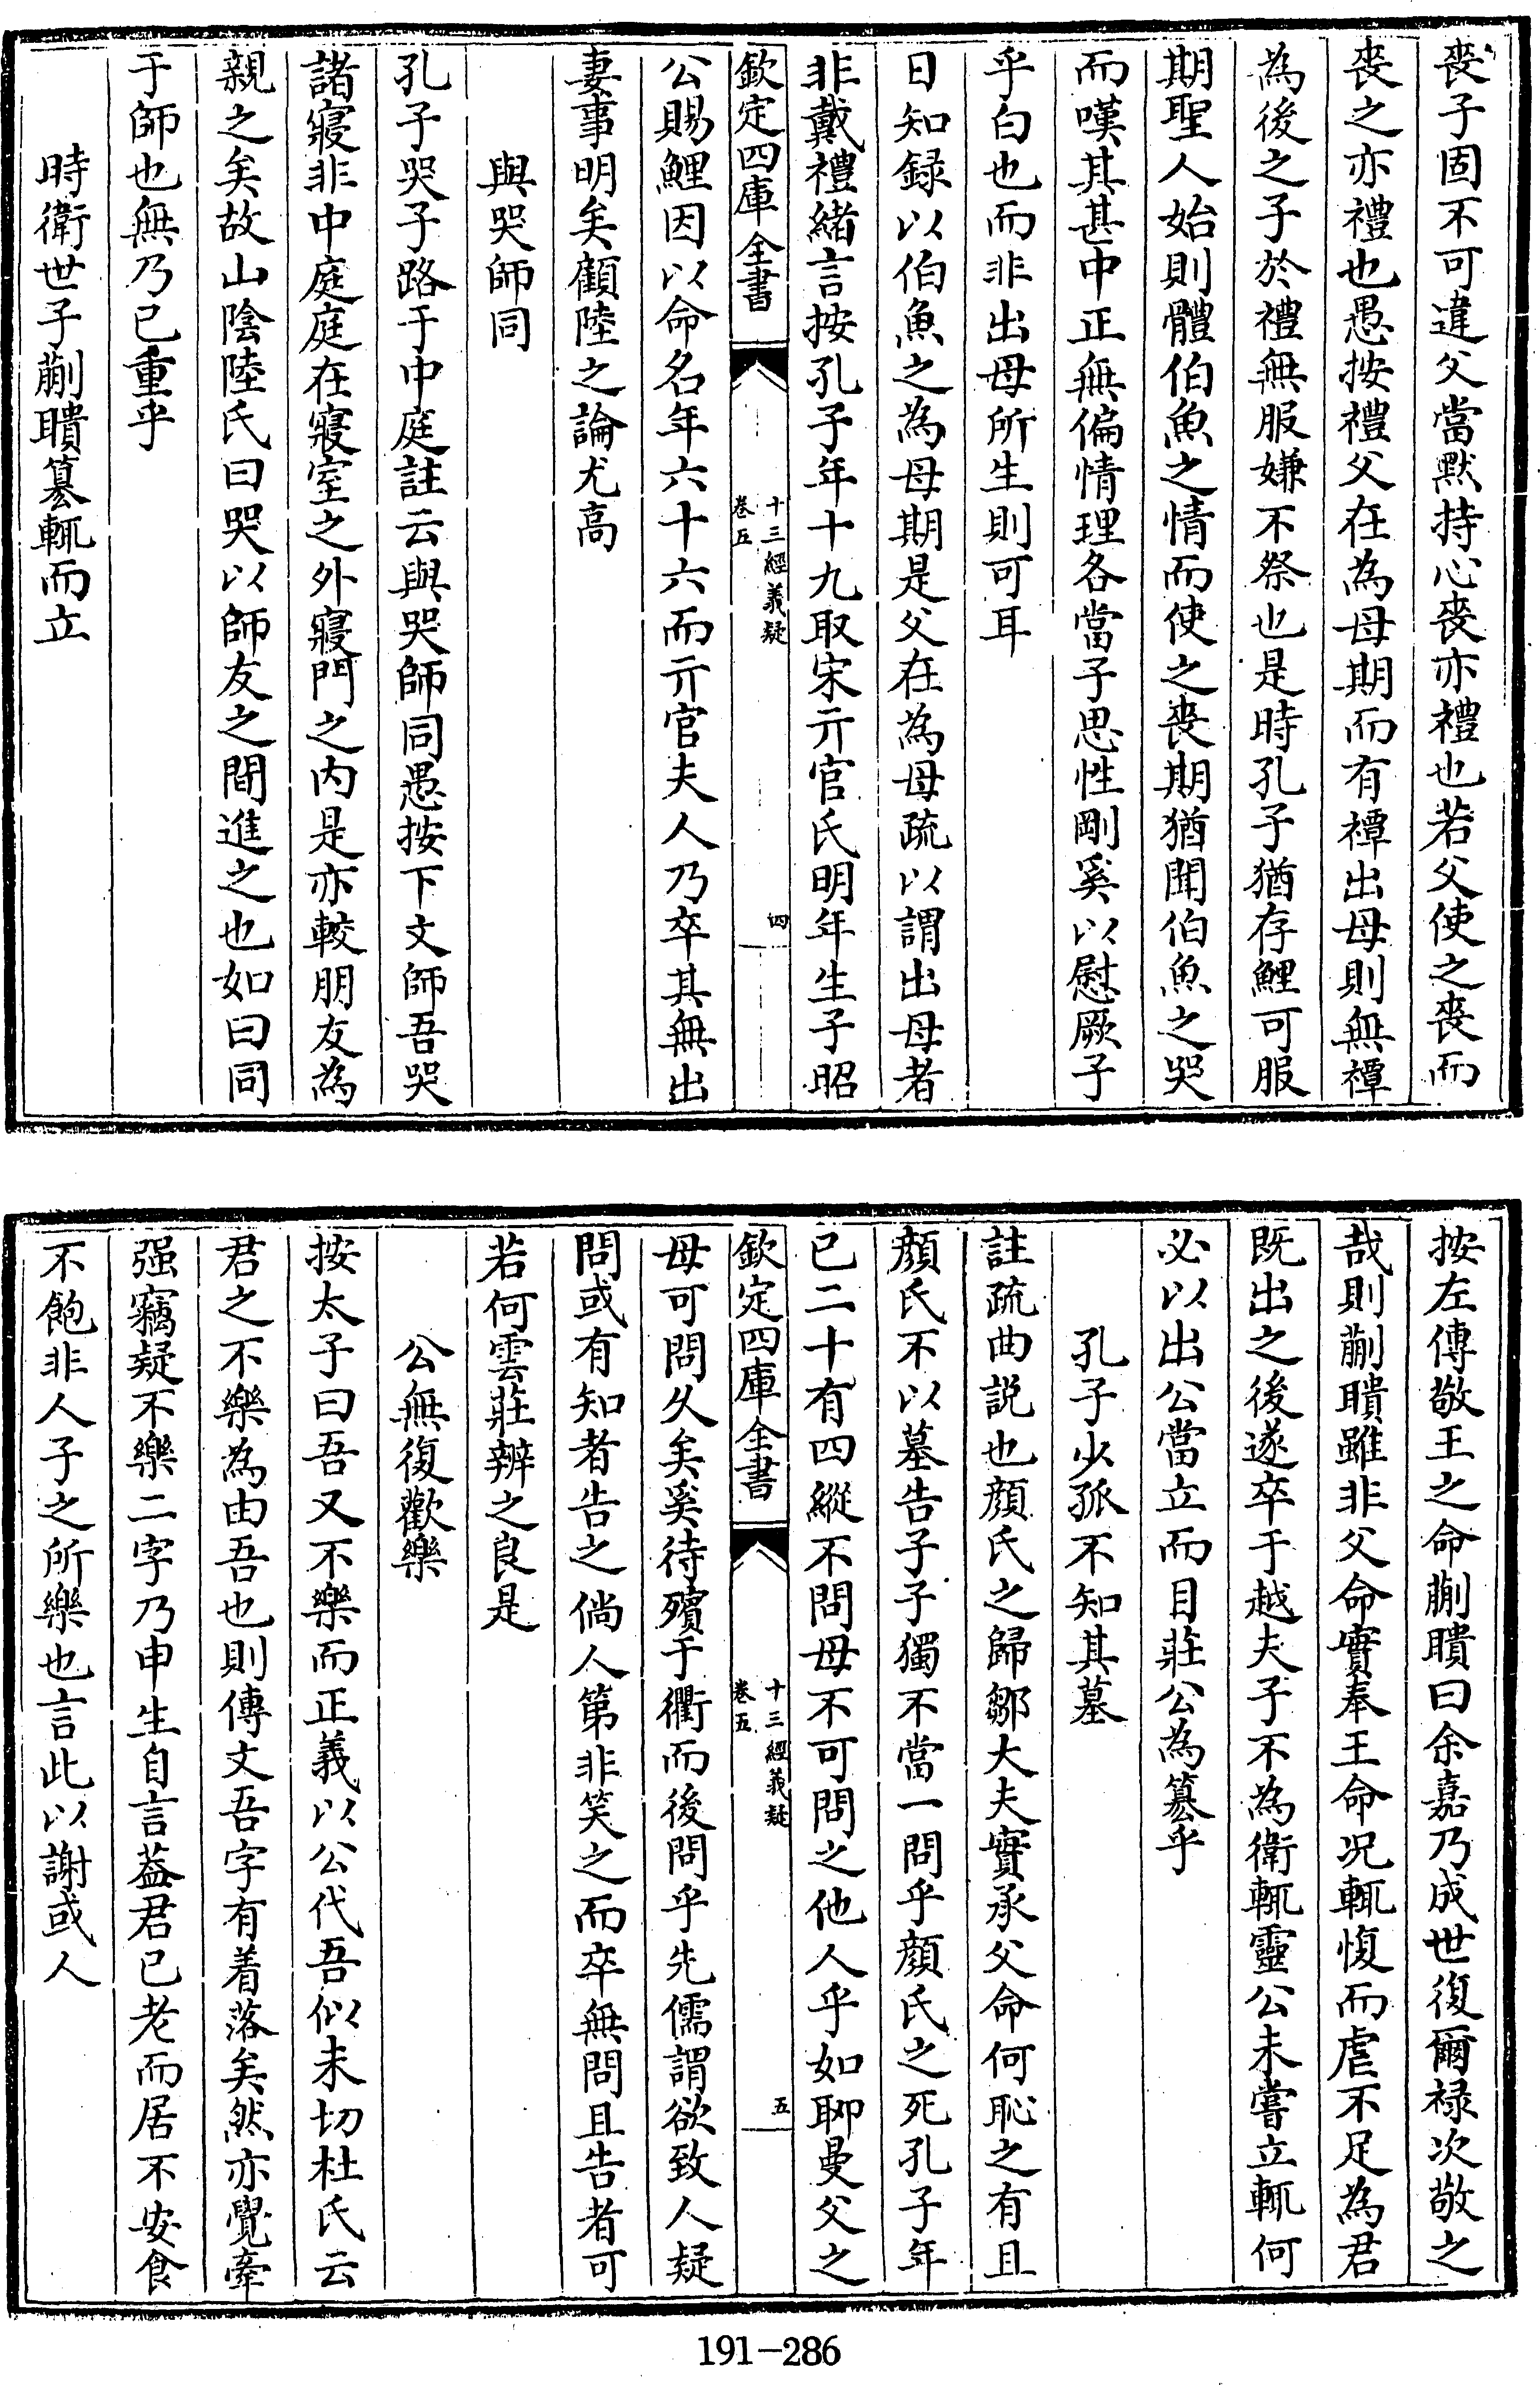 喪子固不可違父當黙持心喪亦禮也若父使之喪而
喪之亦禮也愚按禮父在為母期而有禫出母則無禫
為後之子於禮無服嫌不祭也是時孔子猶存鯉可服
期聖人始則體伯魚之情而使之喪期猶聞伯魚之哭
而嘆其甚中正無偏情理各當子思性剛奚以慰厥子
乎白也而非出母所生則可耳
日知録以伯魚之為母期是父在為母疏以謂出母者
非戴禮緒言按孔子年十九取宋亓官氏明年生子昭
欽定四庫全書
十三經義疑
卷五
四
公賜鯉因以命名年六十六而亓官夫人乃卒其無出
妻事明矣顧陸之論尤高
與哭師同
孔子哭子路于中庭註云與哭師同愚按下文師吾哭
諸寢非中庭庭在寢室之外寢門之内是亦較朋友為
親之矣故山陰陸氏曰哭以師友之間進之也如曰同
于師也無乃已重乎
時衛世子蒯聵簒輒而立
按左傳敬王之命蒯聵曰余嘉乃成世復爾禄次敬之
哉則蒯聵雖非父命實奉王命况輒愎而虐不足為君
既出之後遂卒于越夫子不為衛輒靈公未嘗立輒何
必以出公當立而目莊公為簒乎
孔子少孤不知其墓
註疏曲説也顔氏之歸鄒大夫實承父命何恥之有且
顔氏不以墓告子子獨不當一問乎顔氏之死孔子年
已二十有四縱不問母不可問之他人乎如聊曼父之
欽定四庫全書
十三經義疑
卷五
五
母可問久矣奚待殯于衢而後問乎先儒謂欲致人疑
問或有知者告之倘人第非笑之而卒無問且告者可
若何雲莊辨之良是
公無復歡樂
按太子曰吾又不樂而正義以公代吾似未切杜氏云
君之不樂為由吾也則傳文吾字有着落矣然亦覺牽
强竊疑不樂二字乃申生自言葢君已老而居不安食
不飽非人子之所樂也言此以謝或人
191-286